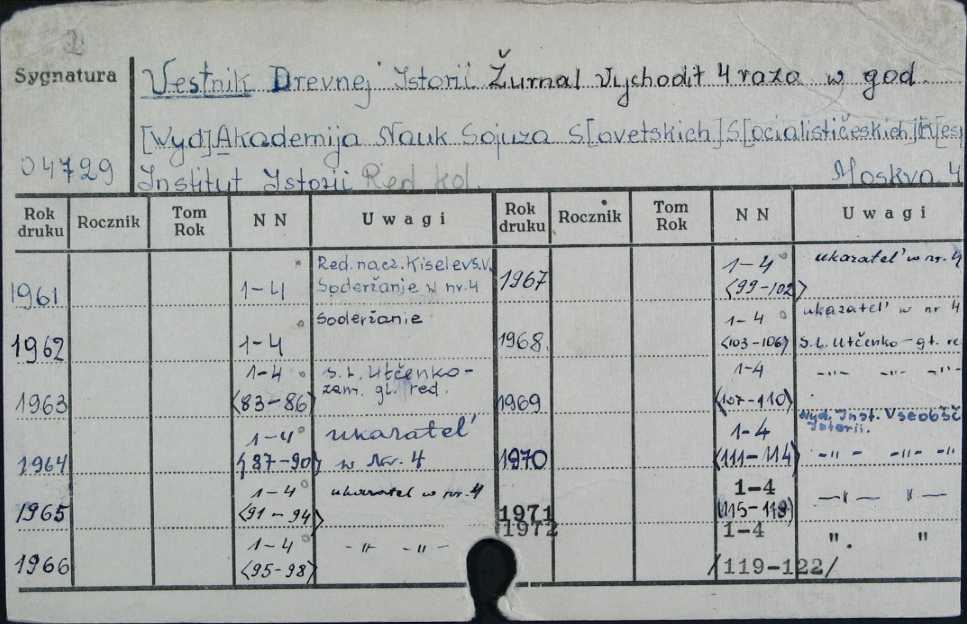 2
Sygnatura
Vestnik Drevnej Istorii Žurnal Vychodit 4 raza w god.
[Wyd] Akademija Nauk Sojuza S[ovetskich] S[ocialističeskich] R[es
04729
Institut Istorii Red. kol. Moskva 4
Rok druku Rocznik Tom Rok N N Uwagi Rok druku Rocznik Tom Rok N N Uwagi
1961 1-4 Red. nacz. Kiselev S.V. Soderžanje w nr. 4
1967 1-4 <99-102> ukazatel' w nr. 4
1962 1-4 Soderžanie
1968. 1-4 <103-106> ukazatel' w nr 4 S.L. Utčenko - gł. re
1963 1-4 <83-86> S.L. Utčenko - zam. gl. red.
1969 1-4 <107-110> -"- -"- -"-
1964 1-4 <87-90> ukazatel' w Nr. 4
1970 1-4 <111-114> Wyd. Inst. Vseobšč Istorii. -"- -"- -"-
1965 1-4 <91-94> ukazatel w nr. 4
1971 1-4 <115-118> -"- "-
1972 1-4 /119-122/ ". "
1966 1-4 <95-98> -"- -"-